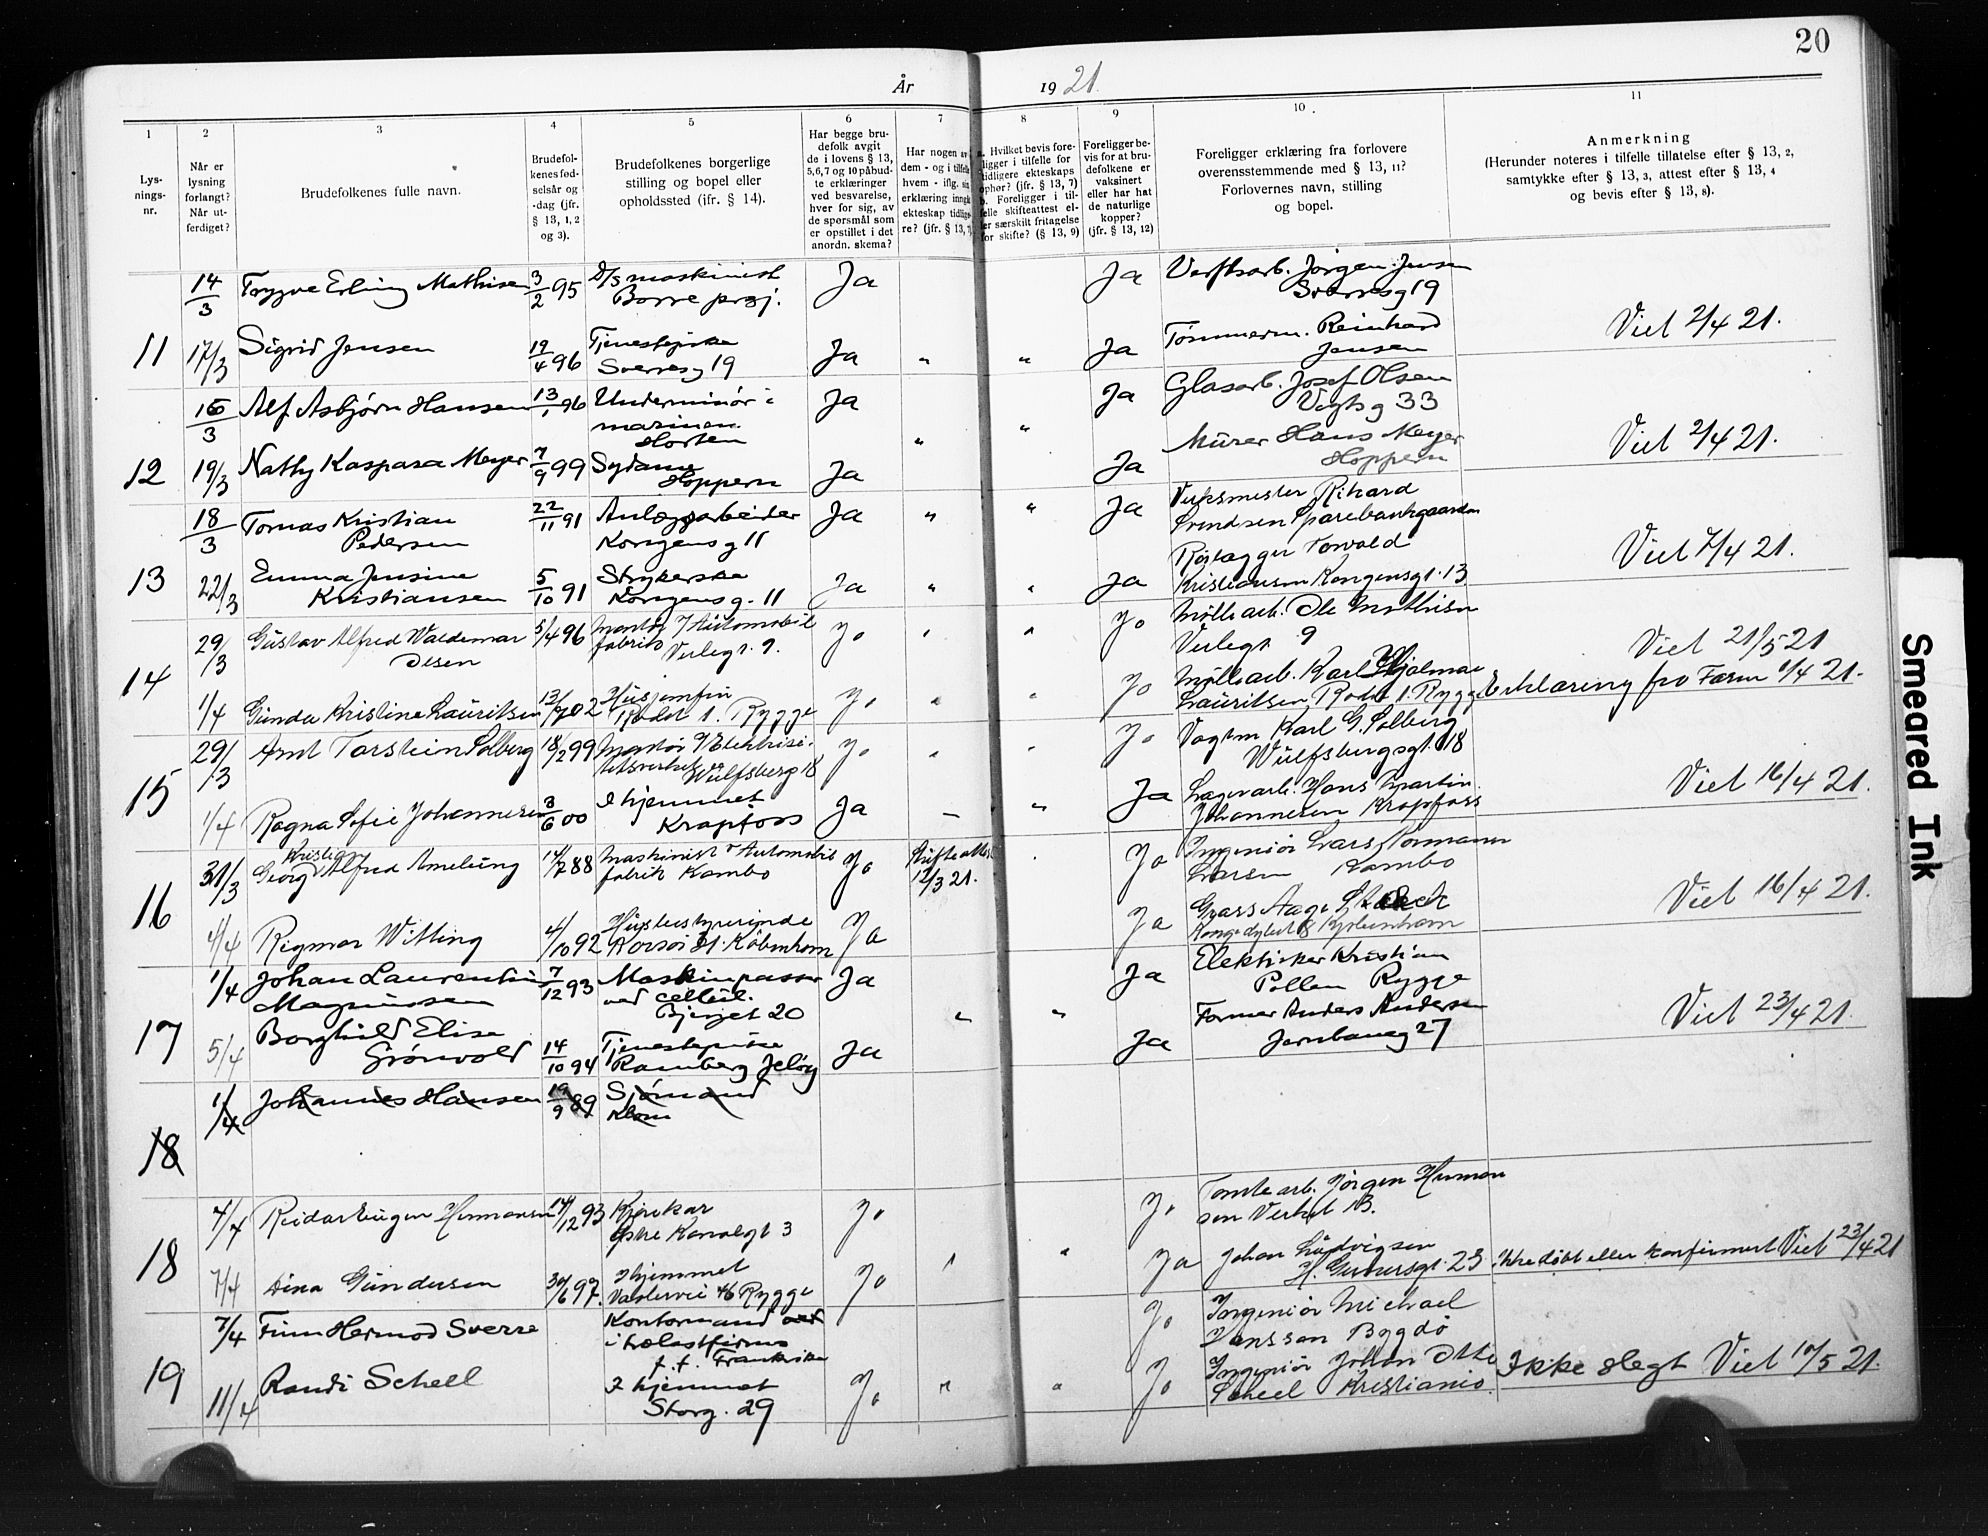 20
År 1921.
1 2 3 4 5 6 7 8 9 10 11
Lys-
nings-
nr.
Når er
lysning
forlangt?
Når ut-
ferdiget?
Brudefolkenes fulle navn.
Brudefol-
kenes fød-
selsår og
-dag (jfr.
§ 13, 1, 2
og 3).
Brudefolkenes borgerlige
stilling og bopel eller
opholdssted (ifr. § 14).
Har begge bru-
defolk avgit
de i lovens § 13,
5,6,7 og 10 påbud-
te erklæringer
ved besvarelse,
hver for sig, av
de spørsmål som
er opstillet i det
anordn. skema?
Har nogen av
dem - og i tilfelle
hvem - iflg. sin
erklæring inngåt
ekteskap tidlige-
re? (jfr. § 13, 7)
a. Hvilket bevis fore-
ligger i tilfelle for
tidligere ekteskaps
ophør? (jfr. § 13, 7)
b. Foreligger i til-
felle skifteattest el-
ler særskilt fritagelse
for skifte? (§ 13, 9)
Foreligger be-
vis for at bru-
defolkene er
vaksinert
eller har hat
de naturlige
kopper?
(jfr. § 13, 12)
Foreligger erklæring fra forlovere
overensstemmende med § 13, 11?
Forlovernes navn, stilling
og bopel.
Anmerkning
(Herunder noteres i tilfelle tillatelse efter § 13, 2,
samtykke efter § 13, 3, attest efter § 13, 4
og bevis efter § 13, 8).
14/3 Trygve Erling Mathisen 3/2 95 D/s maskinist Ja Ja Verftsarb. Jørgen Jensen
Borre prgj. Sverresg 19
11 17/3 Sigrid Jensen 19/4 96 Tjenestepike Ja " " Ja Tømmerm. Reinhard Viet 2/4 21.
Sverresg 19 Jensen
16/3 Alf Asbjørn Hansen 13/1 96 Underminør i Ja Ja Glasarb. Josef Olsen
marinen " " Vogtsg 33
Horten
12 19/3 Nathy Kaspara Meyer 7/9 99 Sydame Ja Ja Murer Hans Meyer Viet 2/4 21.
Hoppern Hoppern
18/3 Tomas Kristian 22/11 91 Anlegsarbeider Ja " " Ja Verksmester Rihard
Pedersen Kongensg 11 Svendsen Sparebankgaarden
13 22/3 Emma Jensine 5/10 91 Strykerske Ja " " Ja Rørlægger Torvald Viet 7/4 21.
Kristiansen Kongensg. 11 Kristiansen Kongensgt. 13
29/3 Gustav Alfred Valdemar 5/4 96 Montør v/Automobil Ja " " Ja Møllearb. Ole Mathisen
Olsen fabrik Verlegt. 9. Verlegt 9 Viet 21/5 21
14 1/4 Gunda Kristine Lauritsen 13/7 02 Husjomfru Ja " " Ja Møllearb. Karl Hjalmar
Rødst 1. Rygge Lauritsen Rødst 1. Rygge Erklæring fra Farm 1/4 21.
29/3 Arnt Torstein Solberg 18/2 99 Montør v/Elektrisi- Ja " " Ja Vogtm Karl G. Solberg
tetsverket Wulfsberg 18 Wulfsbergsgt. 18
15 1/4 Ragna Sofie Johannesen 3/6 00 I hjemmet Ja — " Ja Lagerarb. Hans Martin Viet 16/4 21.
Krapfoss Johannesen Krapfoss
31/3 Georg Kristian Alfred Amelung 14/7 88 Maskinist v Automobil Ja Skifteattest Ja Ingeniør Lars Normann
fabrik Kambo 12/3 21. Larsen Kambo
16 4/4 Rigmor Witting 4/10 92 Husbestyrerinde Ja Ja Gross Aage Viet 16/4 21.
Korsør gt. København
1/4 Johan Laurentius 7/12 93 Maskinpasser Ja Ja Elektriker Kristian
Magnussen ved cellul. Pollen Rygge
Bjerget 20 " "
17 5/4 Borghild Elise 14/10 94 Tjenestepike Ja Ja Former Anders Andersen Viet 23/4 21.
Grønvold Ramberg Jeløy Jernbaneg 27
18 1/4 Johannes Hansen 19/9 89 Sjømand
7/4 Reidar Eugen Hermansen 14/12 93 Kjørekar Ja Ja Tomtearb. Jørgen Herman
Østre Kanalgt 3 sen Verket 13.
18 7/4 Dina Gundersen 30/6 97. I hjemmet Ja " " Ja Johan Ludvigsen Ikke døbt eller konfirmert Viet 23/4 21
Vardevei 46 Rygge H. Gernersgt. 23
7/4 Finn Hermod Sverre Kontormand ved Ja Ingeniør Michael
i trælastfirma Jansson Bygdø
f. t. Frankrike
19 11/4 Randi Scheel I hjemmet Ja " " Ja Ingeniør Johan Otto Ikke slegt Viet 10/5 21.
Storg. 29 Scheel Kristiania.
Smeared Ink